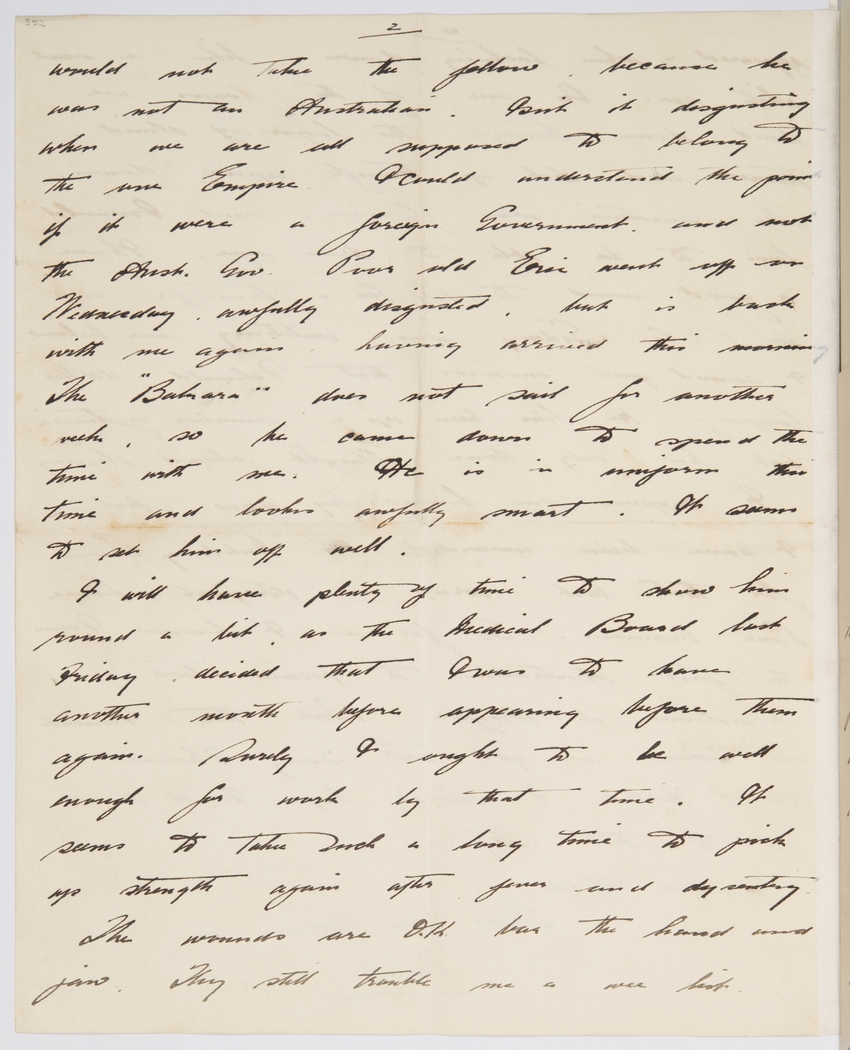 352
2
would not take the fellow, because he
was not an Australian. Isn't it disgusting
when we are all supposed to belong to
the one Empire. I could understand the poin
if it were a foreign Government. and not
the Aust. Gov. Poor old Eric went off on
Wednesday, awfully disgusted, but is back
with me again having arrived this morning
The "Bakara" does not sail for another
week, so he came down to spend the
time with me. He is in uniform this
time and looks awfully smart. It seems
to set him off well.
I will have plenty of time to show him
round a bit, as the Medical Board last
Friday, decided that I was to have
another month before appearing before them
again. Surely I ought to be well
enough for work by that time. It
seems to take such a long time to pick
up strength again after fever and dysentry.
The wounds are O.K. bar the hand and
jaw. They still trouble me a wee bit.